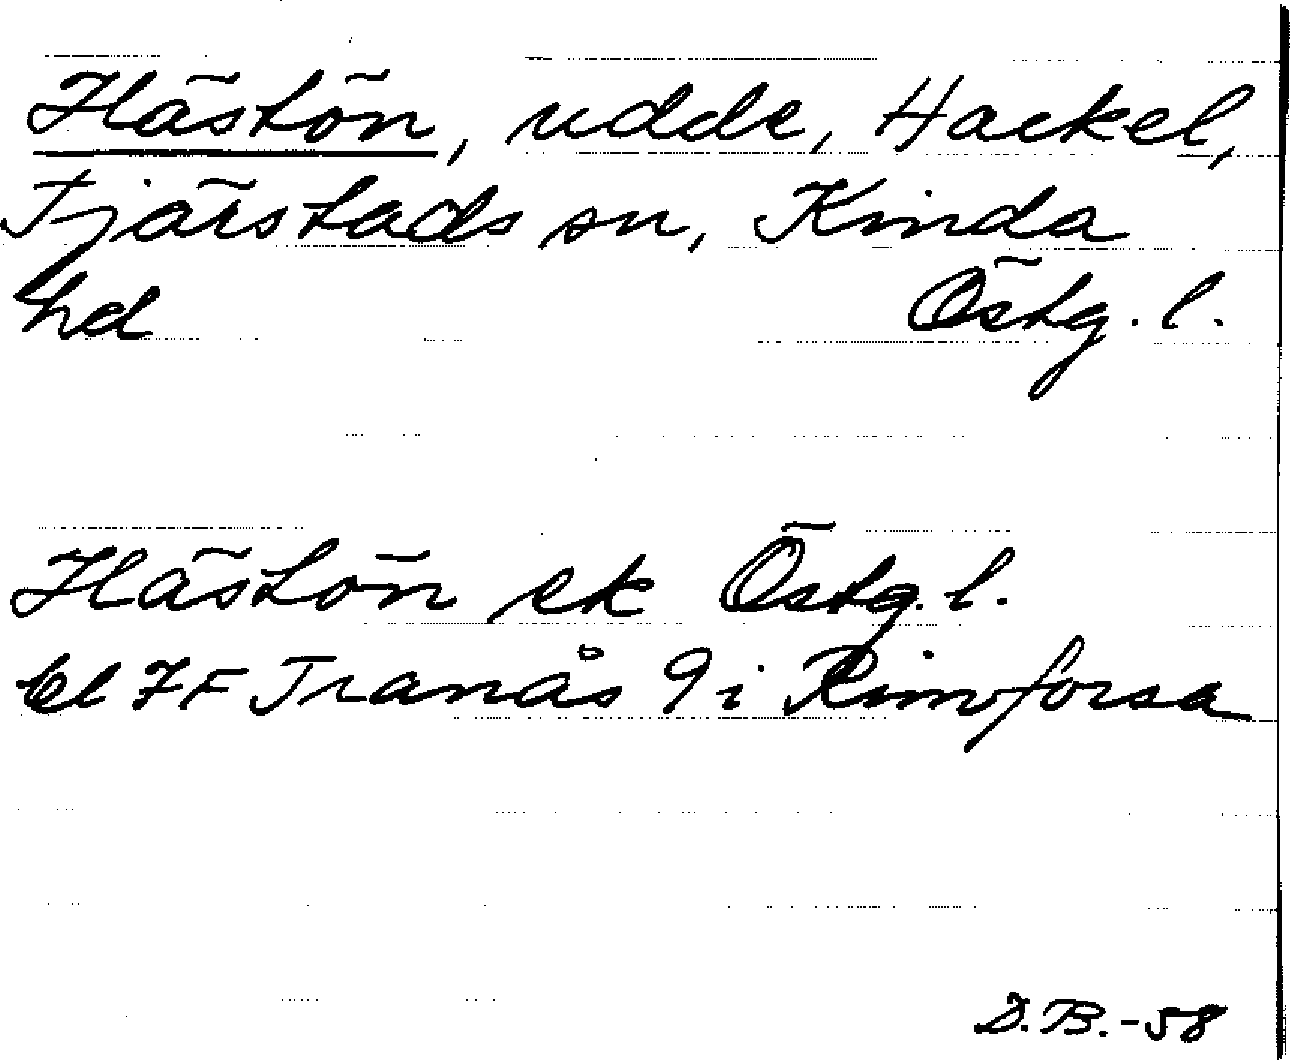 Hästön, udde, Hackel,
Tjärstads sn, Kinda
hd Östg. l.
Hästön ek Östg. l.
bl 7F Tranås 9i Rimforsa
D.B.-58